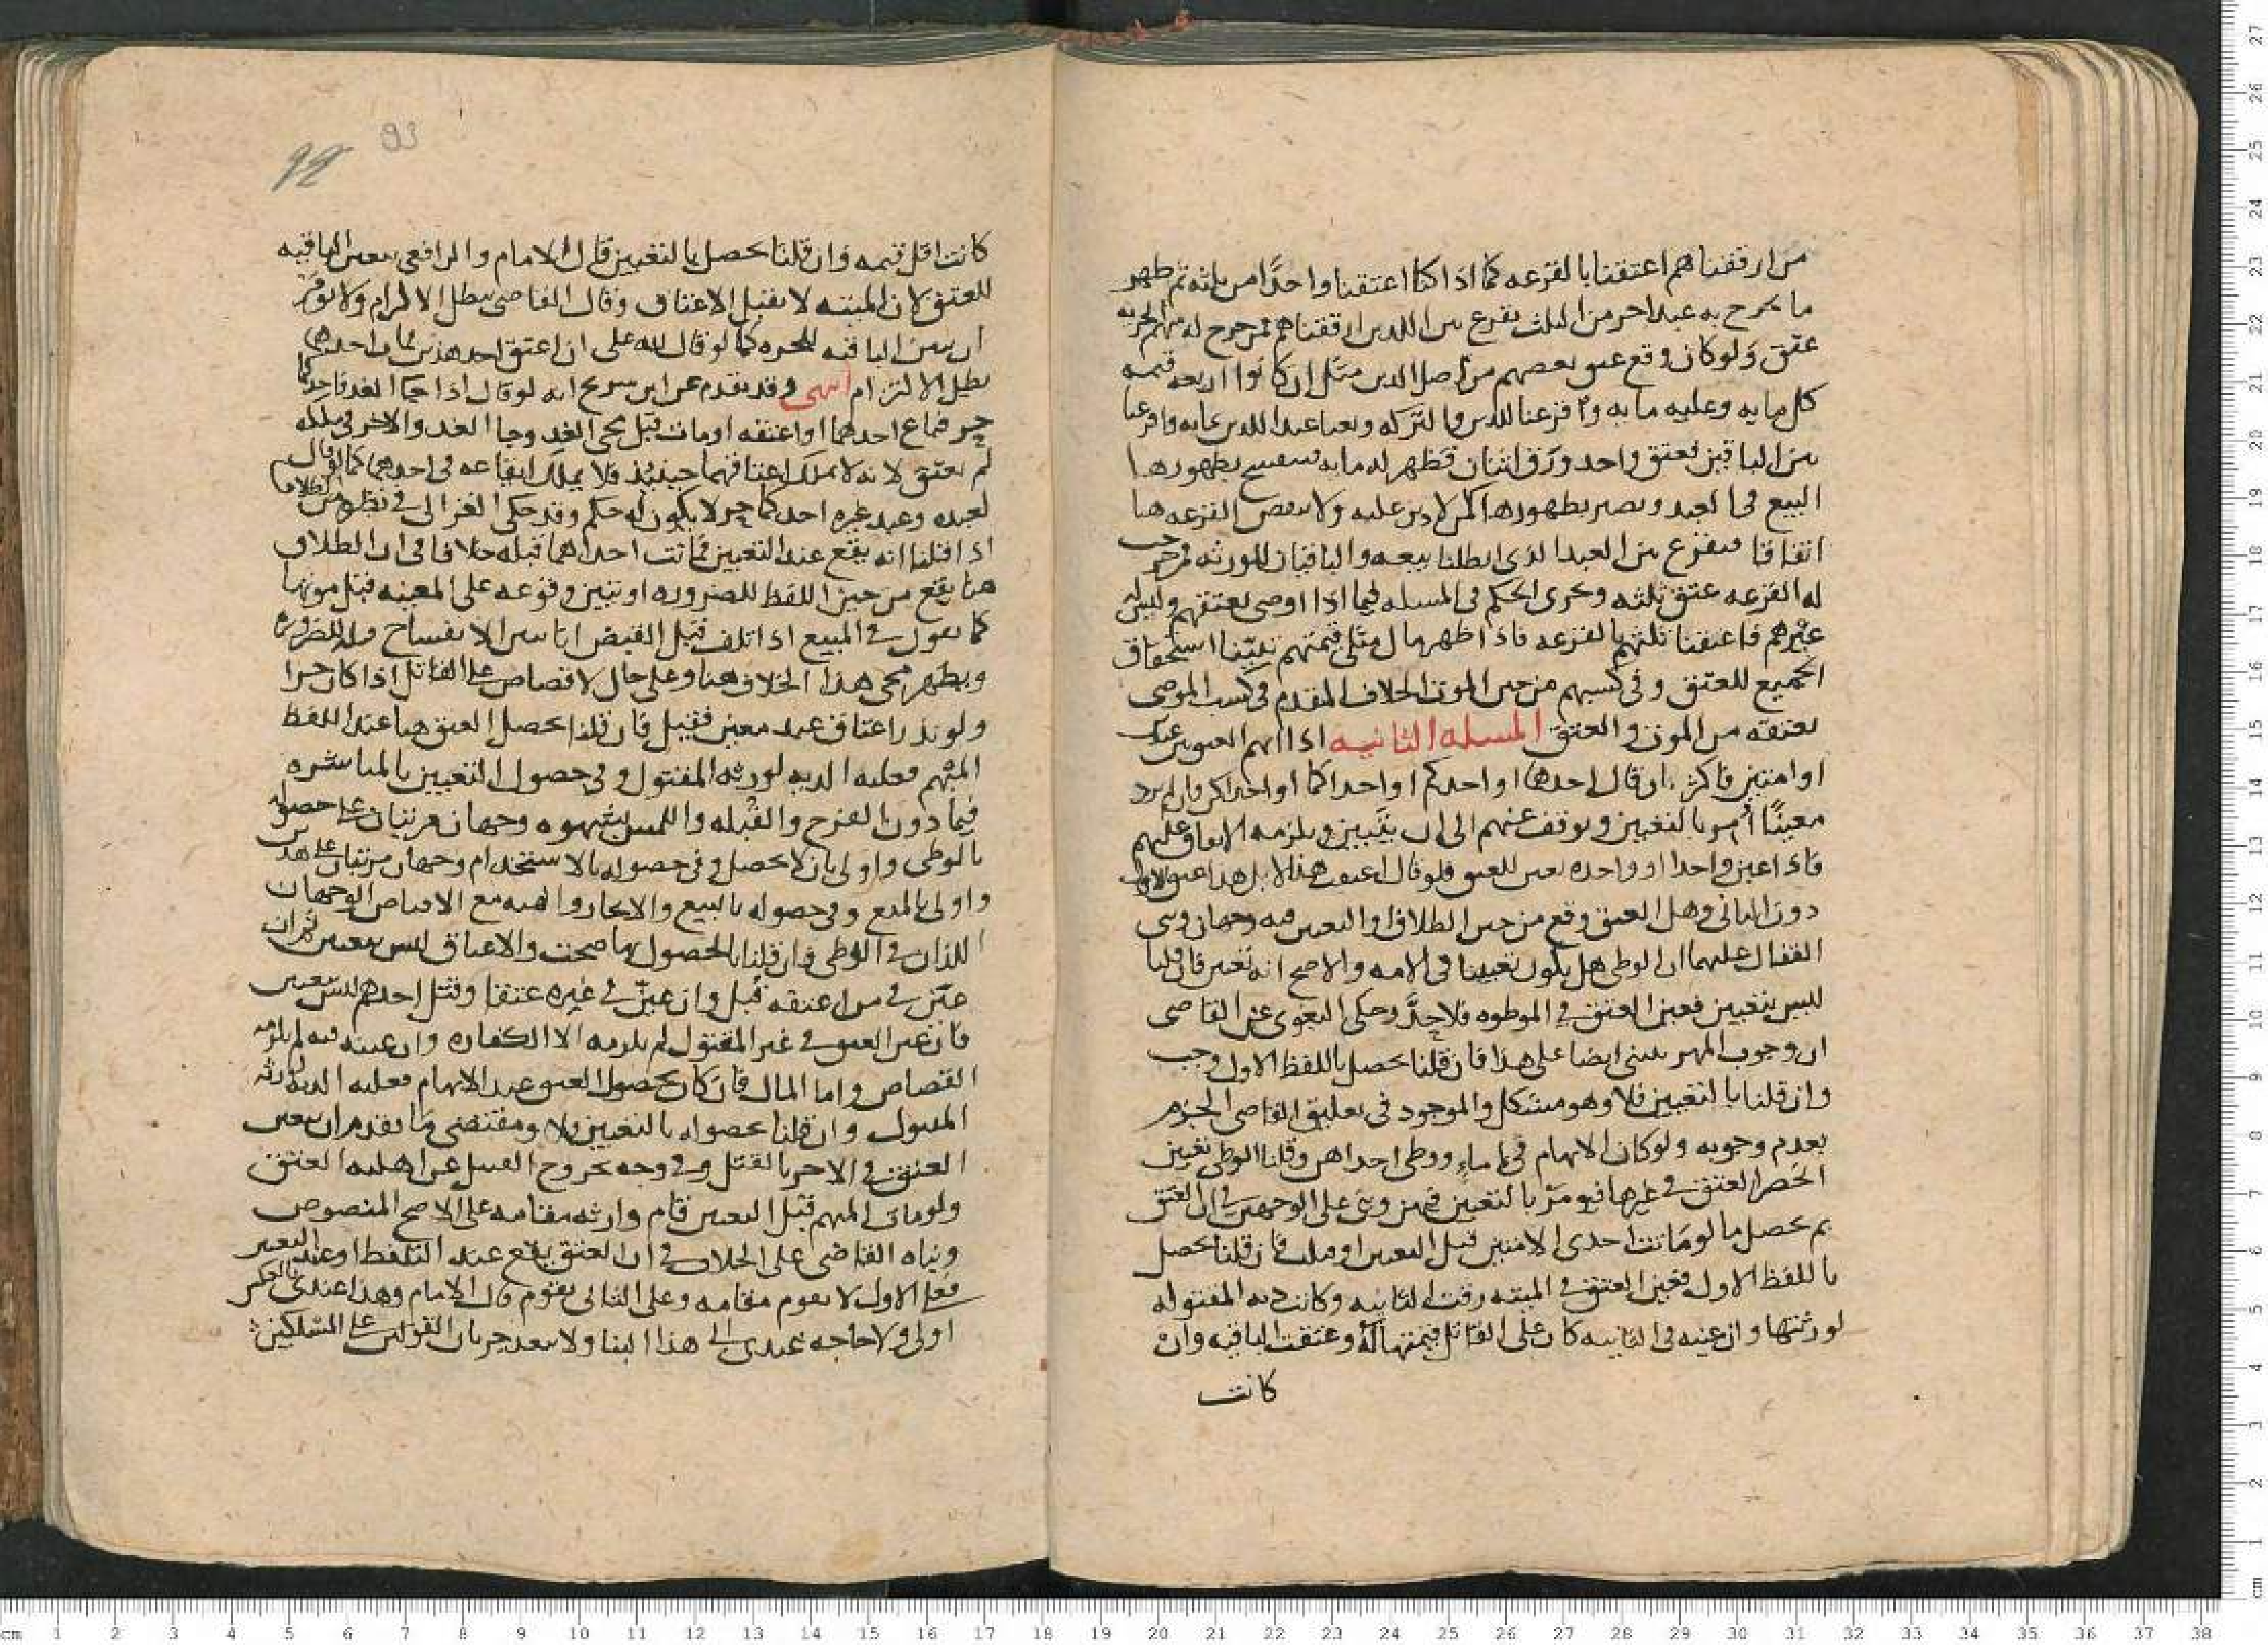 من ارققناهم اعتقنا بالقرعه كما اذا كنا اعتقنا واحدًا من ثلثه ثم ظهر
ما يخرج به عبد اخر من الثلث نقرع بين اللذين ارققناهم فمن خرج له سهم الحريه
عتق ولو كان وقع عتق بعضهم من اصل الدين مثل ان كانوا اربعه قيمه
كل مايه وعليه مايه واقرعنا للدين والتركه وبعنا عبدا للدين بمايه واقرعنا
بين الباقين فعتق واحد ورق اثنان فظهر له مايه فينفسخ بظهورها
البيع في العبد ويصير بظهورها كمن لا دين عليه ولا ينقض القرعه هنا
اتفاقا فيقرع بين العبد الذي ابطلنا بيعه والباقيان للورثه فمن خرجت
له القرعه عتق ثلثه ويجري الحكم في المسله فيما اذا اوصى بعتقهم وليس له
غيرهم فاعتقنا ثلثهم بالقرعه فاذا ظهر مال مثلي قيمتهم تبيّنا استحقاق
الجميع للعتق وفي كسبهم من حين الموت الخلاف المقدم في كسب الموصى
بعتقه من الموت والعتق المسله الثانيه اذا ابهم العتق بين عبدين
او امتين فاكثر بان قال احدها او احدكم او احداكما او احداكن فان لم يرد
معينًا أُمر بالتعيين ويوقف عنهم الى ان يتبين ويلزمه الانفاق عليهم
فاذا عين واحدا او واحده تعين للعتق فلو قال اعتقت هذا لا بل هذا عتق الاول
دون الثاني وهل العتق وقع من حين الطلاق او التعيين فيه وجهان وبنى
القفال عليهما ان الوطي هل يكون تعيينا في الامه والاصح انه تعيين فان قلنا
ليس بتعيين فعين العتق في الموطوه فلا حدَّ وحكى البغوي عن القاضي
ان وجوب المهر يبنى ايضا على هذا فان قلنا يحصل باللفظ الاول وجب
وان قلنا بالتعيين فلا وهو مشكل والموجود في تعليق القاضي الجزم
بعدم وجوبه ولو كان الابهام في اماءٍ ووطى احداهن وقلنا الوطي تعيين
انحصر العتق في غيرها فيومر بالتعيين فيهن وبنى على الوجهين في ان العتق
بم يحصل ما لو ماتت احدى الامتين قبل التعيين او قتلت فان قلنا يحصل
باللفظ الاول فعين العتق في الميته رقت الثانيه وكانت ديه المقتوله
لورثتها وان عينه في الثانيه كان على القاتل قيمتها له وعتقت الباقيه وان
كانت
93
92
كانت اقل قيمه وان قلنا يحصل بالتعيين قال الامام والرافعي تعين الباقيه
للعتق لان الميته لا تقبل الاعتاق وقال القاضي يبطل الابهام ولا يوقر
ان تتعين الباقيه للحره كما لو قال لله على ان اعتق احد هذين فمات احدهما
بطل الالتزام انتهى وقد تقدم عن ابن سريج انه لو قال اذا جا الغد فاحدكما
حر فباع احدهما او اعتقه او مات قبل مجي الغد وجا الغد والاخر في ملكه
لم يعتق لانه لا يملك اعتاقهما حينيذ فلا يملك ايقاعه في احدهما كما لو قال
لعبده وعبد غيره احدكما حر لا يكون له حكم وقد حكى الغزالي في نظيره من الطلاق
اذا قلنا انه يقع عند التعيين فماتت احداهما قبله خلافا في ان الطلاق
هنا يقع من حين اللفظ للضروره او تبين وقوعه على المعينه قبل موتها
كما نقول في المبيع اذا تلف قبل القبض انا نتبين الانفساح قبله للضروره
ويظهر مجي هذا الخلاف هنا وعلى حال لا قصاص على القاتل اذا كان حرا
ولو نذر اعتاق عبد معين فقتل فان قلنا يحصل العتق هنا عند اللفظ
المبهم فعليه الديه لورثه المقتول وفي حصول التعيين بالمباشره
فيما دون الفرج والقُبله واللمس بشهوه وجهان مرتبان على حصوله
بالوطي واولى بان لا يحصل وفي حصوله بالاستخدام وجهان مرتبان على هذين
واولى بالمنع وفي حصوله بالبيع والايجار والهبه مع الاقباض الوجهان
اللذان في الوطي فان قلنا بالحصول بها صحت والاعتاق ليس بتعيين ثم ان
عيّن في من اعتقه قُبل وان عين في غيره عتقا وقتل احدهم ليس بتعيين
فان عين العتق في غير المقتول لم يلزمه الا الكفاره وان عينه فيه لم يلزمه
القصاص واما المال فان كان يحصول العتق عند الابهام فعليه الديه لورثه
المقتول وان قلنا بحصوله بالتعيين فلا ومقتضى ما تقدم ان تعين
العتق في الاخر بالقتل وفي وجه بخروج القتيل عن اهليه العتق
ولو مات المبهم قبل التعيين قام وارثه مقامه على الاصح المنصوص
وبناه القاضي على الخلاف في ان العتق يقع عند التلفظ او عند التعيين
فعلى الاول لا يقوم مقامه وعلى الثاني يقوم قال الامام وهذا عندي بالعكس
اولى ولا حاجه عندي الى هذا البنا ولا يبعد جريان القولين على المسلكين